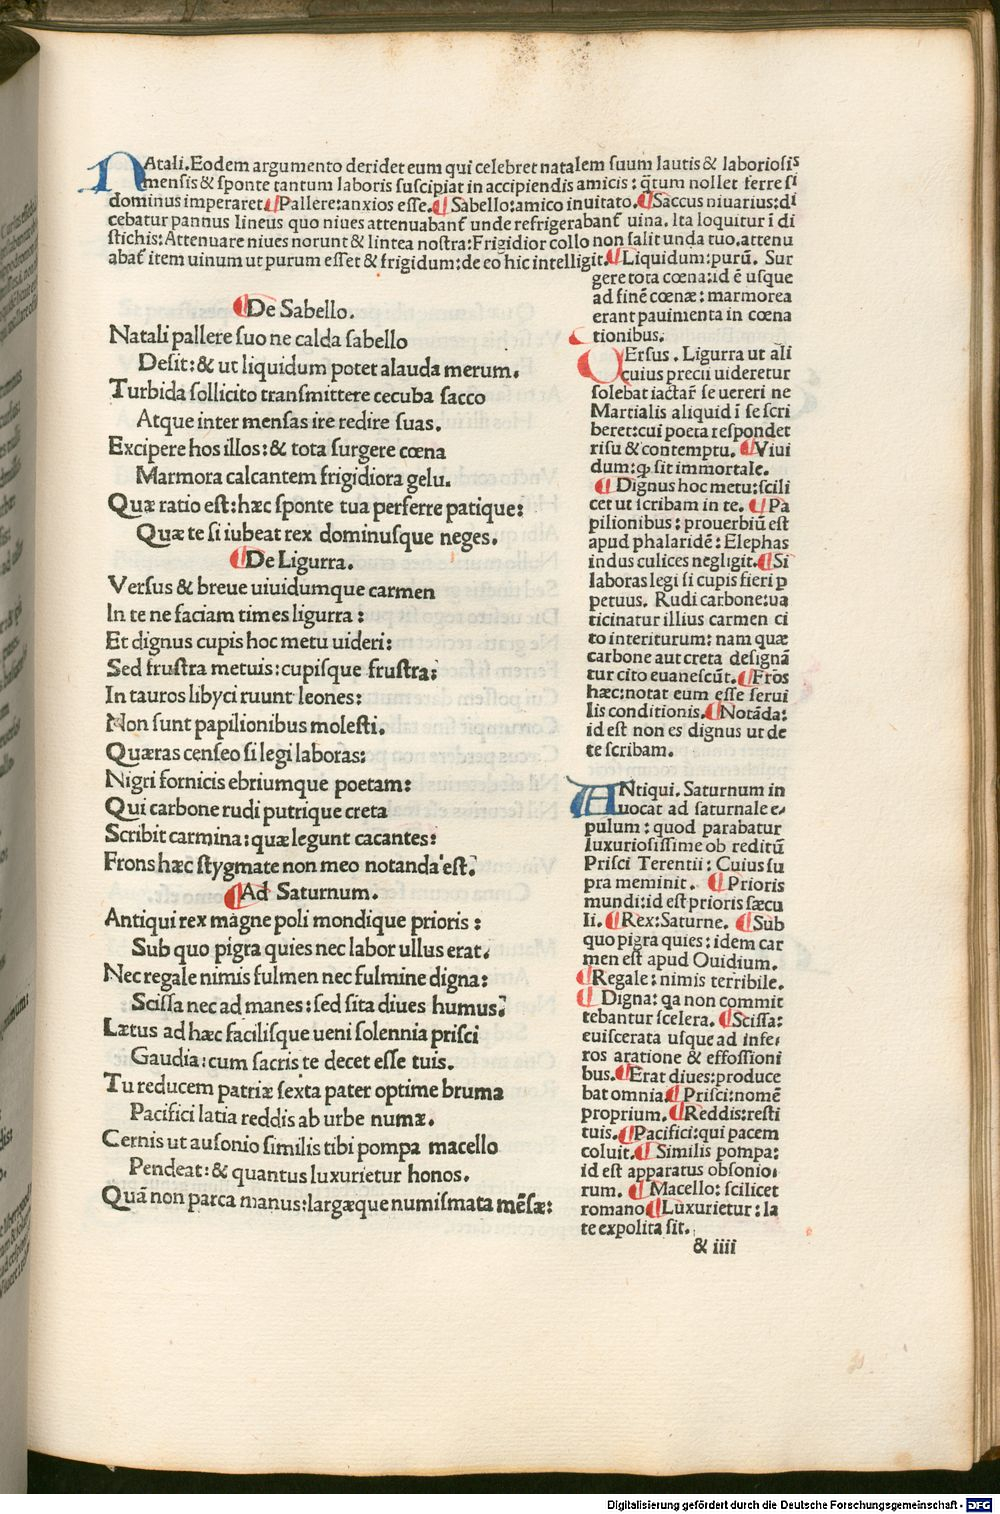 NAtali. Eodem argumento deridet eum qui celebret natalem suum lautis & laboriosis
mensis & sponte tantum laboris suscipiat in accipiendis amicis: q̃tum nollet ferre si
dominus imperaret. ¶Pallere: anxios esse. ¶Sabello: amico inuitato. ¶Saccus niuarius: di
cebatur pannus lineus quo niues attenuabant̃ unde refrigerabant̃ uina. Ita loquitur ĩ di
stichis: Attenuare niues norunt & lintea nostra: Frigidior collo non salit unda tuo. attenu
abat̃ item uinum ut purum esset & frigidum: de eo hic intelligit. ¶Liquidum: purũ. Sur
gere tota cœna: id ẽ usque
ad finẽ cœnæ: marmorea
erant pauimenta in cœna
tionibus.
¶De Sabello.
Natali pallere suo ne calda sabello
Desit: & ut liquidum potet alauda merum.
Turbida sollicito transmittere cecuba sacco
Atque inter mensas ire redire suas.
Excipere hos illos: & tota surgere cœna
Marmora calcantem frigidiora gelu.
Quæ ratio est: hæc sponte tua perferre patique:
Quæ te si iubeat rex dominusque neges.
¶De Ligurra.
Versus & breue uiuidumque carmen
In te ne faciam times ligurra:
Et dignus cupis hoc metu uideri:
Sed frustra metuis: cupisque frustra:
In tauros libyci ruunt leones:
Non sunt papilionibus molesti.
Quæras censeo si legi laboras:
Nigri fornicis ebriumque poetam:
Qui carbone rudi putrique creta
Scribit carmina: quæ legunt cacantes:
Frons hæc stygmate non meo notanda est.
¶Ad Saturnum.
Antiqui rex magne poli mondique prioris:
Sub quo pigra quies nec labor ullus erat.
Nec regale nimis fulmen nec fulmine digna:
Scissa nec ad manes: sed sita diues humus.
Lætus ad hæc facilisque ueni solennia prisci
Gaudia: cum sacris te decet esse tuis.
Tu reducem patriæ sexta pater optime bruma
Pacifici latia reddis ab urbe numæ.
Cernis ut ausonio similis tibi pompa macello
Pendeat: & quantus luxurietur honos.
Quã non parca manus: largæque numismata mẽsæ:
VErsus. Ligurra ut ali
cuius precii uideretur
solebat iactar̃ se uereri ne
Martialis aliquid ĩ se scri
beret: cui poeta respondet
risu & contemptu. ¶Viui
dum: ꝙ sit immortale.
¶Dignus hoc metu: scili
cet ut scribam in te. ¶Pa
pilionibus: prouerbiũ est
apud phalaridẽ: Elephas
indus culices negligit. ¶Si
laboras legi si cupis fieri ꝑ
petuus. Rudi carbone: ua
ticinatur illius carmen ci
to interiturum: nam quæ
carbone aut creta designã
tur cito euanescũt. ¶Frõs
hæc: notat eum esse serui
lis conditionis. ¶Notãda:
id est non es dignus ut de
te scribam.
ANtiqui. Saturnum in
uocat ad saturnale e-
pulum: quod parabatur
luxuriosissime ob reditũ
Prisci Terentii: Cuius su
pra meminit. ¶Prioris
mundi: id est prioris sæcu
li. ¶Rex: Saturne. ¶Sub
quo pigra quies: idem car
men est apud Ouidium.
¶Regale: nimis terribile.
¶Digna: qa non commit
tebantur scelera. ¶Scissa:
euiscerata usque ad infe-
ros aratione & effossioni
bus. ¶Erat diues: produce
bat omnia. ¶Prisci: nomẽ
proprium. ¶Reddis: resti
tuis. ¶Pacifici: qui pacem
coluit. ¶Similis pompa:
id est apparatus obsonio-
rum. ¶Macello: scilicet
romano ¶Luxurietur: la
te expolita sit.
& iiii
Digitalisierung gefördert durch die Deutsche Forschungsgemeinschaft - DFG